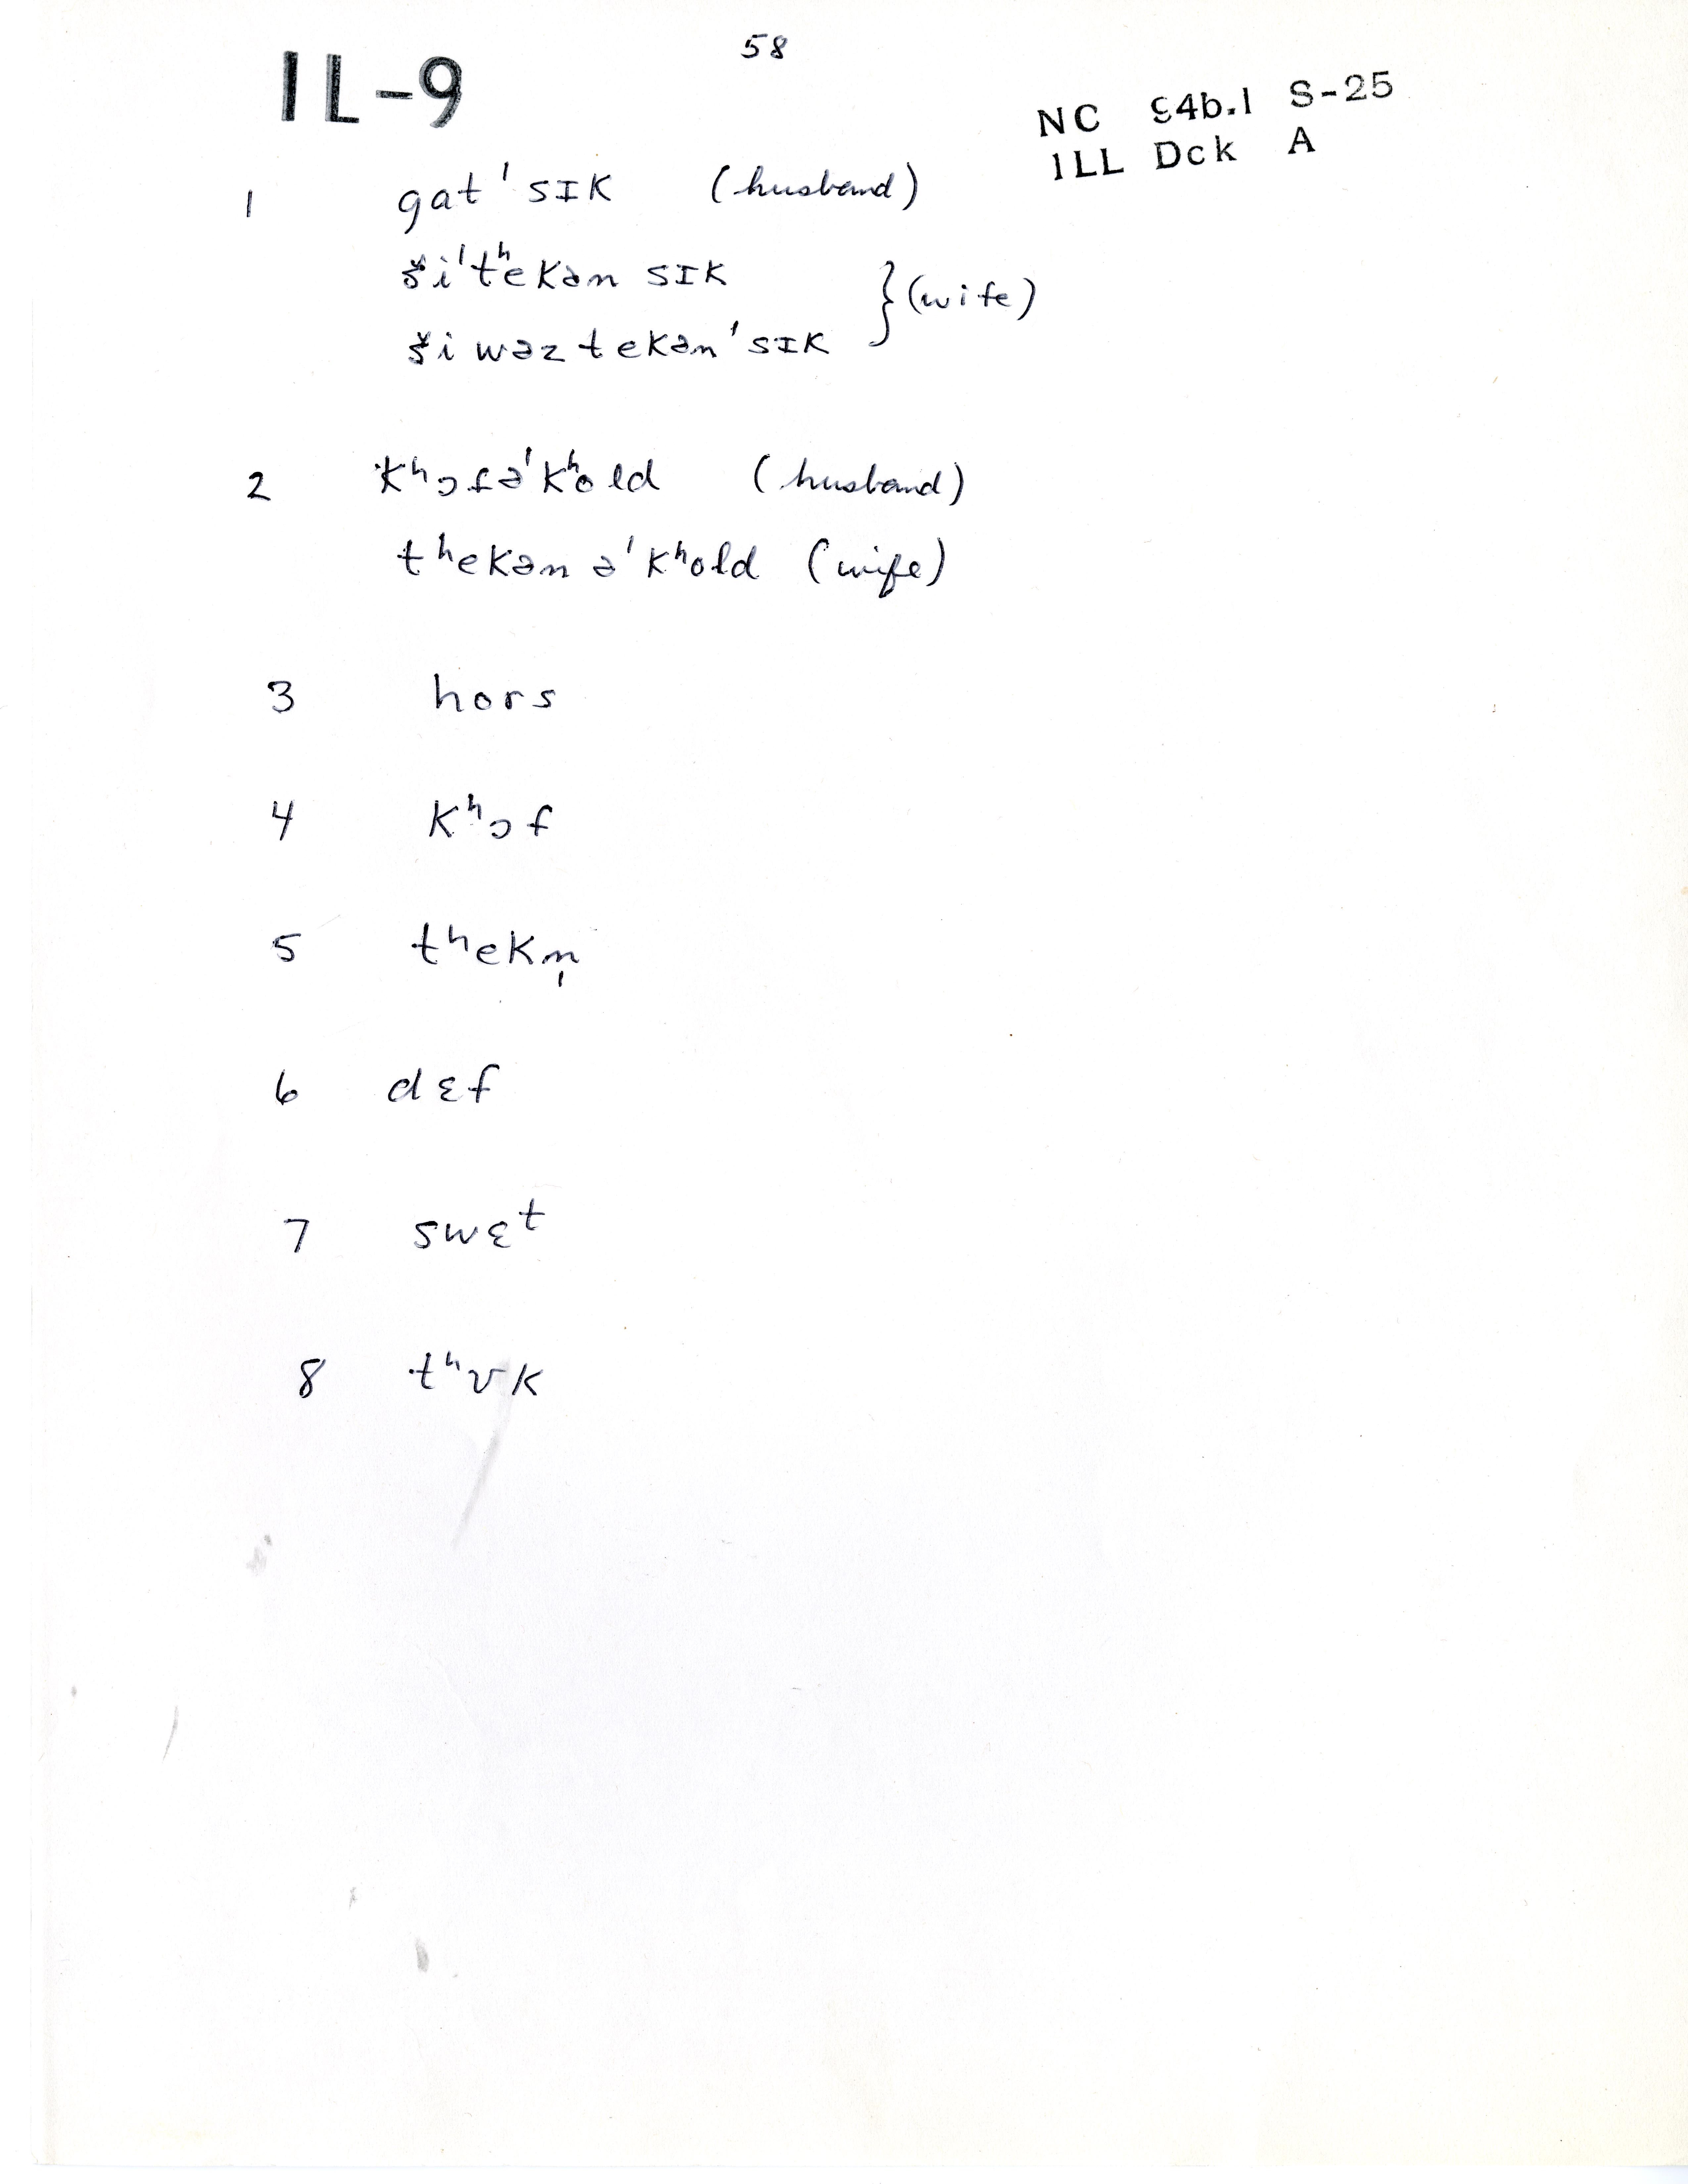 58
IL-9
NC 94b.1 S-25
ILL Dck A
1 gat ˈsɪk (husband)
ši ˈtʰekən sɪk
ši wəz tekən ˈsɪk } (wife)
2 kʰɔf ə ˈkʰold (husband)
tʰekən ə ˈkʰold (wife)
3 hors
4 kʰɔf
5 tʰekn̩
6 dɛf
7 swɛt
8 tʰʊk